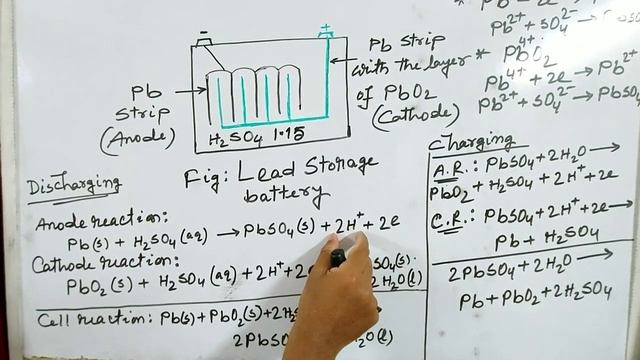 Pb²⁺ + SO₄²⁻ → PbSO
* PbO₂
Pb⁴⁺
Pb⁴⁺ + 2e → Pb²⁺
Pb²⁺ + SO₄²⁻ → PbSO
- +
Pb strip
with the layer
of PbO₂
(Cathode)
Pb
strip
(Anode)
H₂SO₄ 1.15
Fig: Lead Storage
battery
Discharging
Anode reaction:
Pb(s) + H₂SO₄(aq) → PbSO₄(s) + 2H⁺ + 2e
Cathode reaction:
PbO₂(s) + H₂SO₄(aq) + 2H⁺ + 2e SO₄(s)
2H₂O(l)
Cell reaction: Pb(s) + PbO₂(s) + 2H₂S
2PbSO O(l)
Charging
A.R.: PbSO₄ + 2H₂O →
PbO₂ + H₂SO₄ + 2H⁺ + 2e
C.R.: PbSO₄ + 2H⁺ + 2e →
Pb + H₂SO₄
2PbSO₄ + 2H₂O →
Pb + PbO₂ + 2H₂SO₄